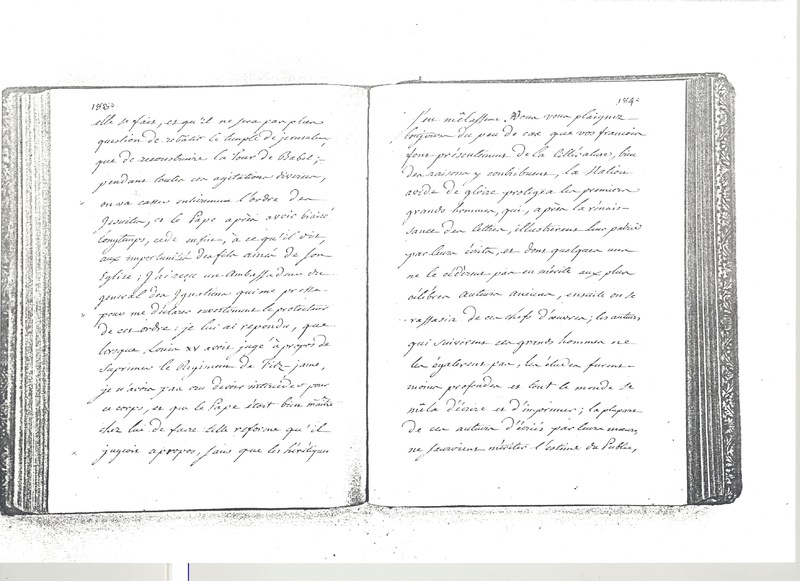 183.
elle se fait, et qu'il ne sera pas plus
question de rebâtir le temple de jerusalem,
que de reconstruire la Tour de Babel;
pendant toutes ces agitations diverses,
on va casser entièrement l'ordre des
Jesuites, et le Pape après avoir biaisé
longtemps, cede enfin, à ce qu'il dit,
aux importunités des fils ainés de son
Eglise; J'ai reçu un Ambassadeur du
general des Ignatiens qui me presse
pour me déclarer ouvertement le protecteur
de cet ordre: je lui ai repondu, que
lorsque Louis XV avoit jugé à propos de
suprimer le Regiment de Fitz-james,
je n'avois pas cru devoir interceder pour
ce corps, et que le Pape étoit bien maître
chez lui de faire telle reforme qu'il
jugeoit apropos, sans que les hérétiques
184.
s'en mêlassent. Vous vous plaignez
toujours du peu de cas que vos francois
font présentement de la littérature, bien
des raisons y contribuent, la Nation
avide de gloire protegea les premiers
grands hommes, qui, après la renais-
sance des lettres, illustrerent leur patrie
par leurs écrits, et dont quelques uns
ne le cédèrent pas en mérite aux plus
célébres auteurs anciens, ensuite on se
rassasia de ces chefs d'œuvres; les auteurs
qui suivirent ces grands hommes ne
les égalerent pas, les études furent
moins profondes et tout le monde se
mêla d'écrire et d'imprimer; la plupart
de ces auteurs décriés par leurs mœurs,
ne pouvoient mériter l'estime du Public,